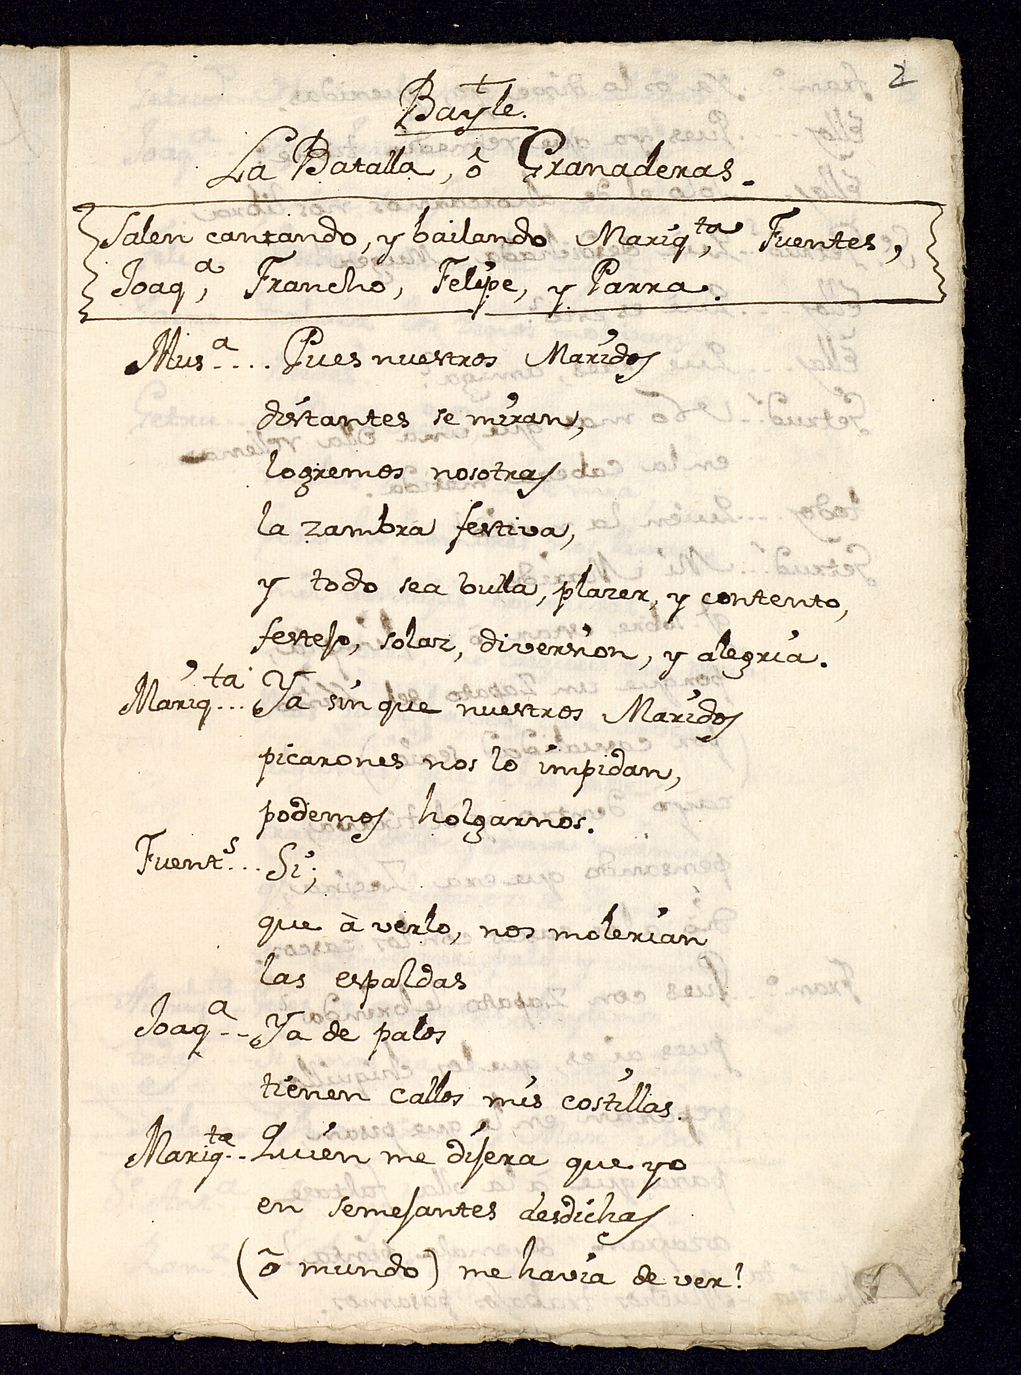 2
Bayle.
La Batalla, ô Granaderas.
Salen cantando, y bailando Mariq.ta, Fuentes,
Joaq.a, Francho, Felipe, y Parra.
Mus.a.... Pues nuestros Maridos
distantes se miran,
logremos nosotras
la zambra festiva,
y todo sea bulla, plazer, y contento,
festejo, solaz, diversion, y alegria.
Mariq.ta... Ya sin que nuestros Maridos
picarones nos lo impidan,
podemos holgarnos.
Fuent.s... Si;
que à verlo, nos molerian
las espaldas
Joaq.a.. Ya de palos
tienen callos mis costillas.
Mariq.ta.. Quien me dijera que yo
en semejantes desdichas
(ô mundo) me havia de ver!